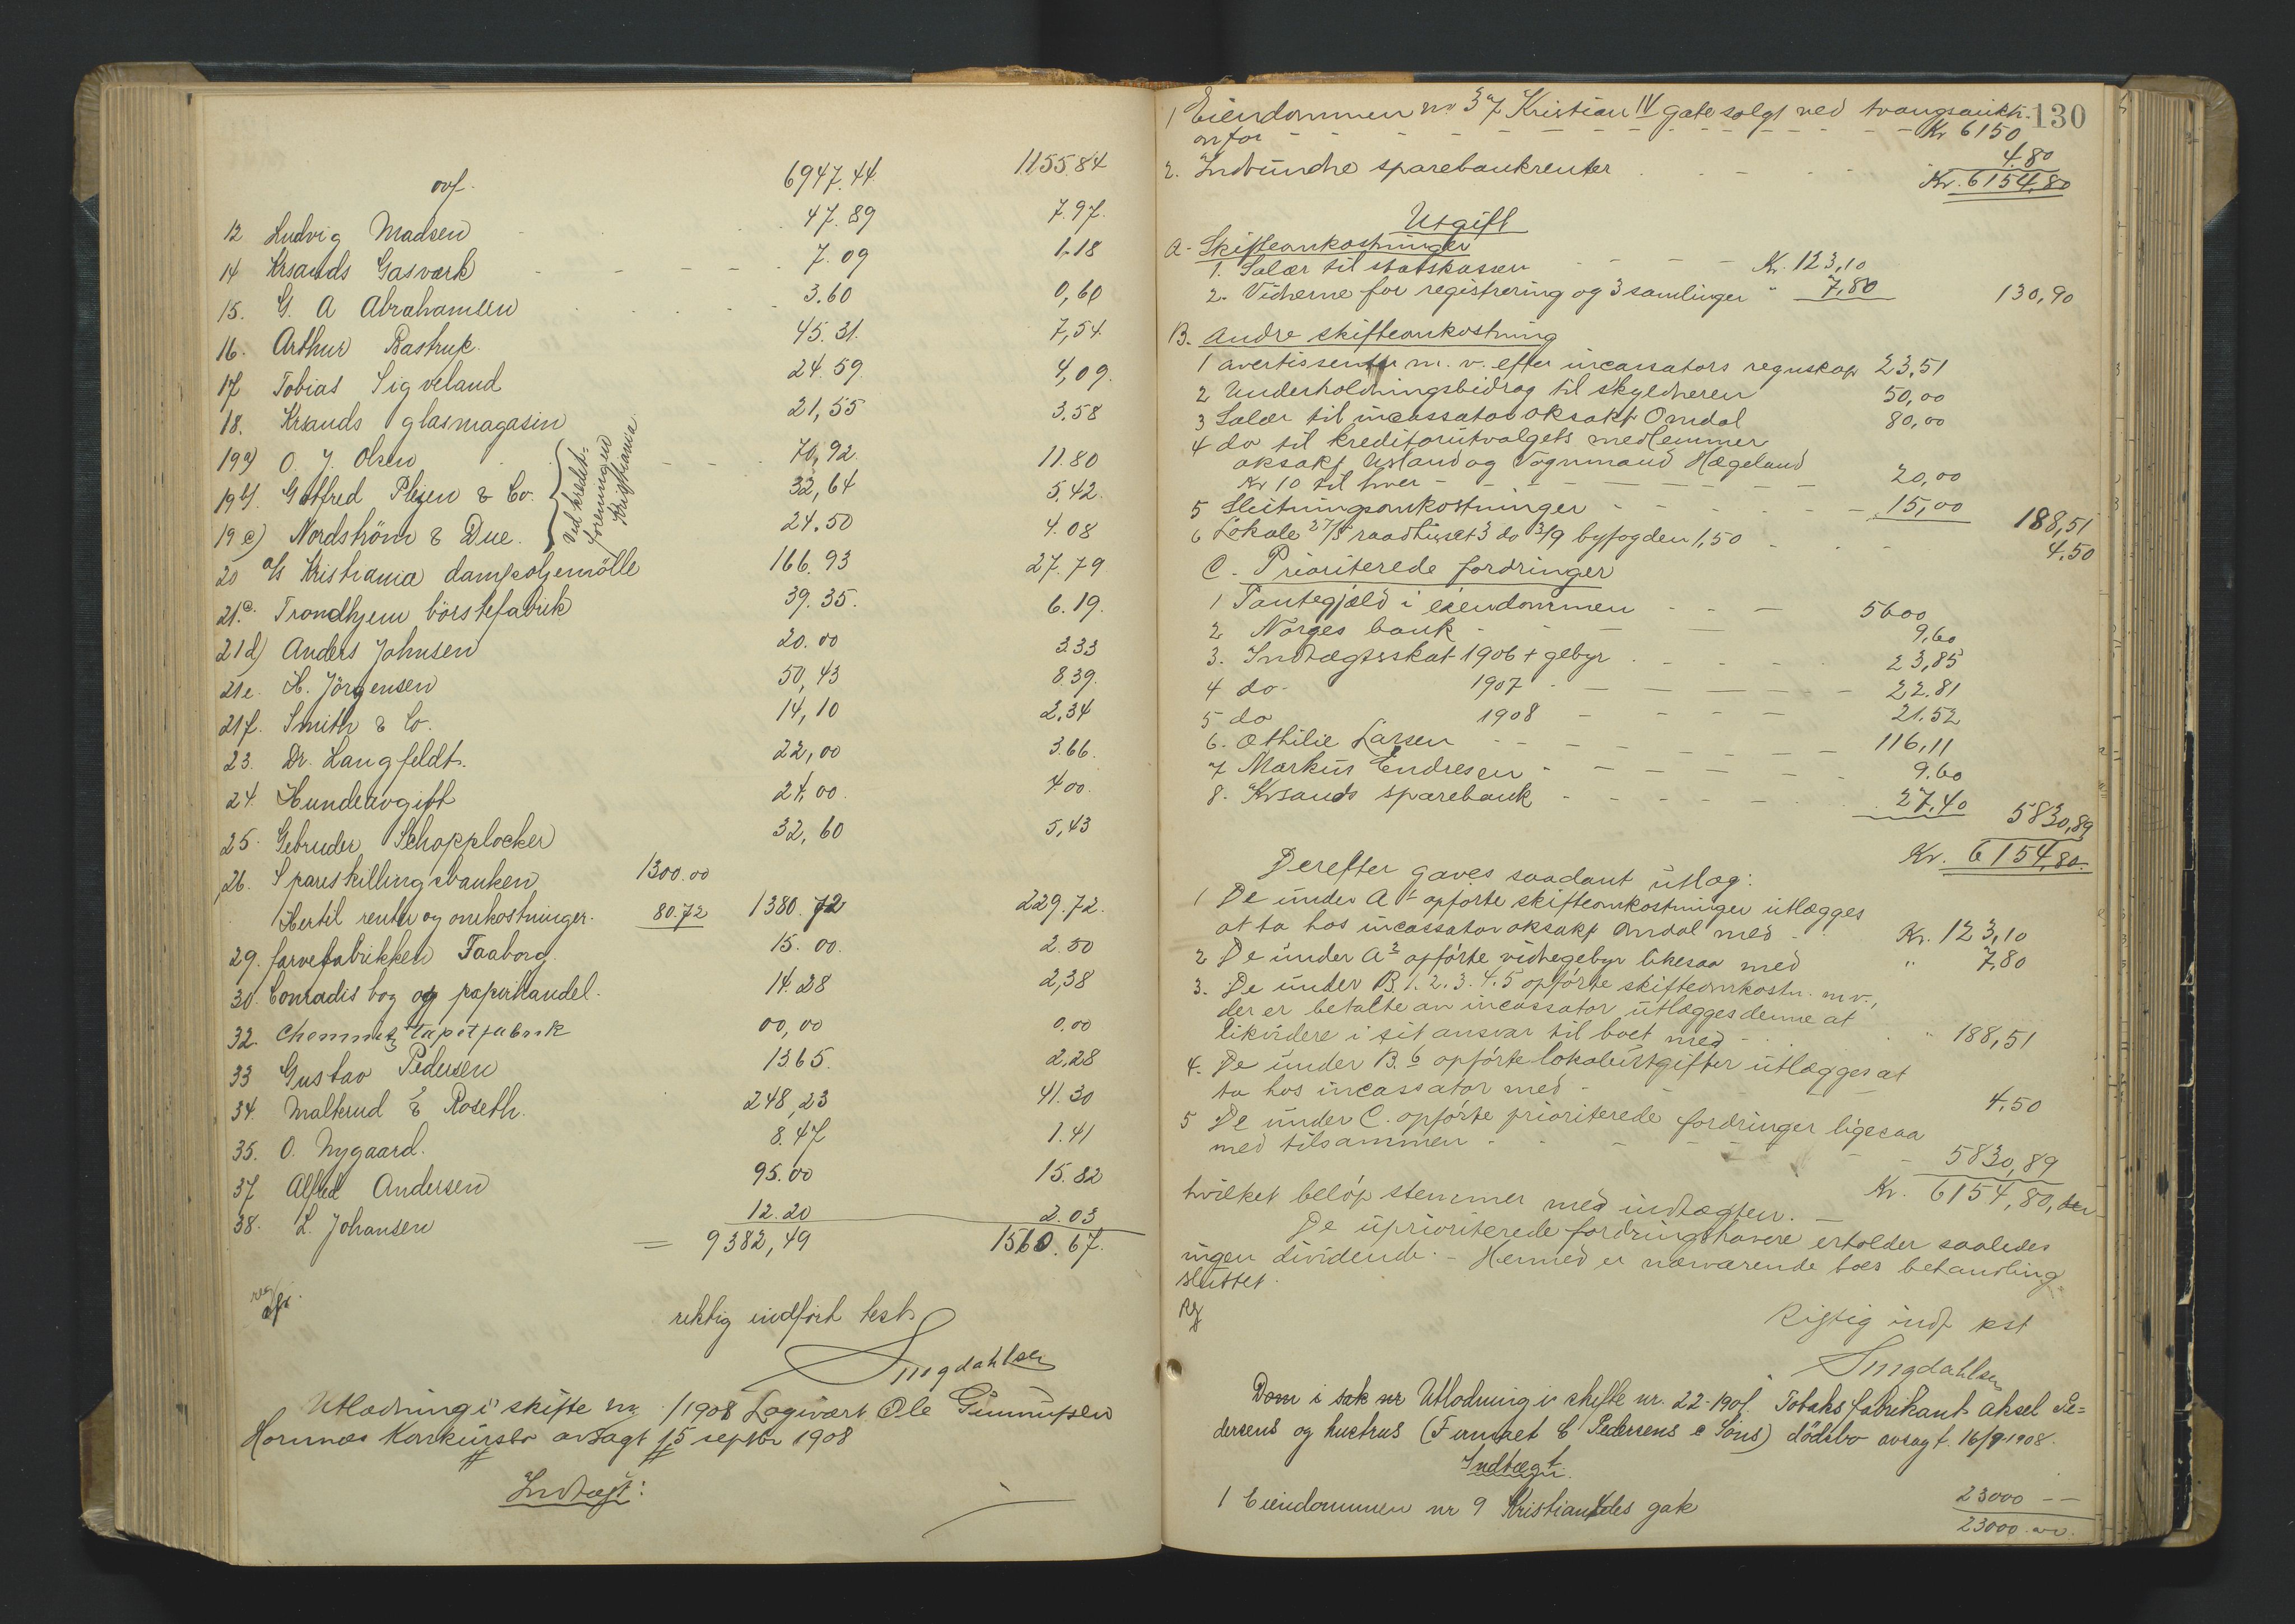 ovf. 6947.44 1155.84
12 Ludvig Madsen 47.89 7.97.
14 Krsands Gasværk 7.09 1.18
15. G. A Abrahamsen 3.60 0,60
16. Arthur Bastrup. 45.31. 7,54.
17 Tobias Sigveland 24.59 4,09.
18. Krsands glasmagasin 21,55 3.58
19a) O. J. Olsen 70,92. 11.80
19b). Gotfred Plejen & Co. 32,64 5,42.
19c) Nordström & Due. 24.50 4.08
Ved kredit-
foreningen
Kristiania
20 a/s Kristiania dampoljemölle 166.93 27.79
21c. Trondhjem börstefabrik 39.35. 6.19.
21d) Anders Johnsen 20.00 3.33
21e. H. Jörgensen 50,43 8.39.
21f. Smith & Co. 14,10 2,34
23. Dr. Langfeldt. 22,00 3.66.
24. Hundeavgift 24,00. 4 00.
25. Gebruder Schopplocher 32,60 5,43
26. Spareskillingsbanken 1300.00
Hertil renter og omkostninger. 80.72 1380.72 229.72.
29. farvefabrikken Faaborg. 15.00. 2.50
30. Conradis bog og papirhandel. 14.28 2,38
32. Chemnitz Tapetfabrik 00,00 0.00
33 Gustav Pedersen 1365. 2,28
34. Malterud & Roseth. 248,23 41.30
35. O. Nygaard. 8.47 1.41
37 Alfred Andersen 95.00 15.82
38. L. Johansen 12.20 2.03
= 9382,49 1560.67.
riktig indført test.
Smgdahlsen
Utlodning i skifte nr /1908 Logivært Ole Gunnufsen
Hornnes Konkursbo avsagt 15 septbr 1908
Indtægt:
130
1 Eiendommen nr 37 Kristian IV gate solgt ved tvangsaukti-
on for - - - Kr 6150
2. Indvundne sparebankrenter 4.80
Kr. 6154,80
Utgift
A. Skifteomkostninger
1. Salær til statskassen - - - Kr. 123,10
2. Vidnerne for registrering og 3 samlinger " 7,80 130,90
B. Andre skifteomkostning
1 avertissementer m. v. efter incassators regnskap 23,51
2 Underholdningsbidrag til skyldneren 50,00
3 Salær til incassator oksakf Omdal 80,00
4 do til kreditorutvalgets medlemmer
oksakf Usland og Vognmand Hægeland
Kr 10 til hver - - - 20,00
5 Slutningsomkostninger - - - 15,00 188,51
6 Lokale 27/5 raadhuset 3 do 3/9 byfogden 1,50 - - - 4.50
C. Prioriterede fordringer
1 Pantegjæld i eiendommen - - - 5600
2 Norges bank - - - 9,60
3. Indtægtsskat 1906 + gebyr - - - 23,85
4 do. 1907 - - - 22.81
5 do 1908 - - - 21.52
6. Othilie Larsen - - - 116,11
7 Markus Endresen - - - 9.60
8. Krsands sparebank - - - 27,40 5830,89
Kr. 6154,80.
Derefter gaves saadant utlæg:
1 De under A1 opførte skifteomkostninger utlægges
at ta hos incassator oksakf Omdal med - Kr. 123,10
2 De under A2 opførte vidnegebyr likesaa med " 7,80
3. De under B. 1. 2. 3. 4. 5 opførte skifteomkostn. m v.,
der er betalte av incassator utlægges denne at
likvidere i sit ansvar til boet med - " 188,51
4. De under B. 6 opførte lokalutgifter utlægges at
ta hos incassator med - 4,50
5 De under C. opførte prioriterede fordringer ligesaa
med tilsammen - - - 5830,89
Kr. 6154,80,
hvilket beløp stemmer med indtægten. -
De uprioriterede fordringshavere erholder saaledes
ingen dividende. - Hermed er nærværende boes behandling
sluttet.
Rigtig indf test
Smgdahlsen
Dom i sak nr Utlodning i skifte nr. 22-1901. Tobaksfabrikant Aksel Pe=
dersens og hustrus (Firmaet C Pedersens & Søns) dödsbo avsagt. 16/9-1908.
Indtægt.
1 Eiendommen nr 9 Kristian 4des gate 23000 --
23000